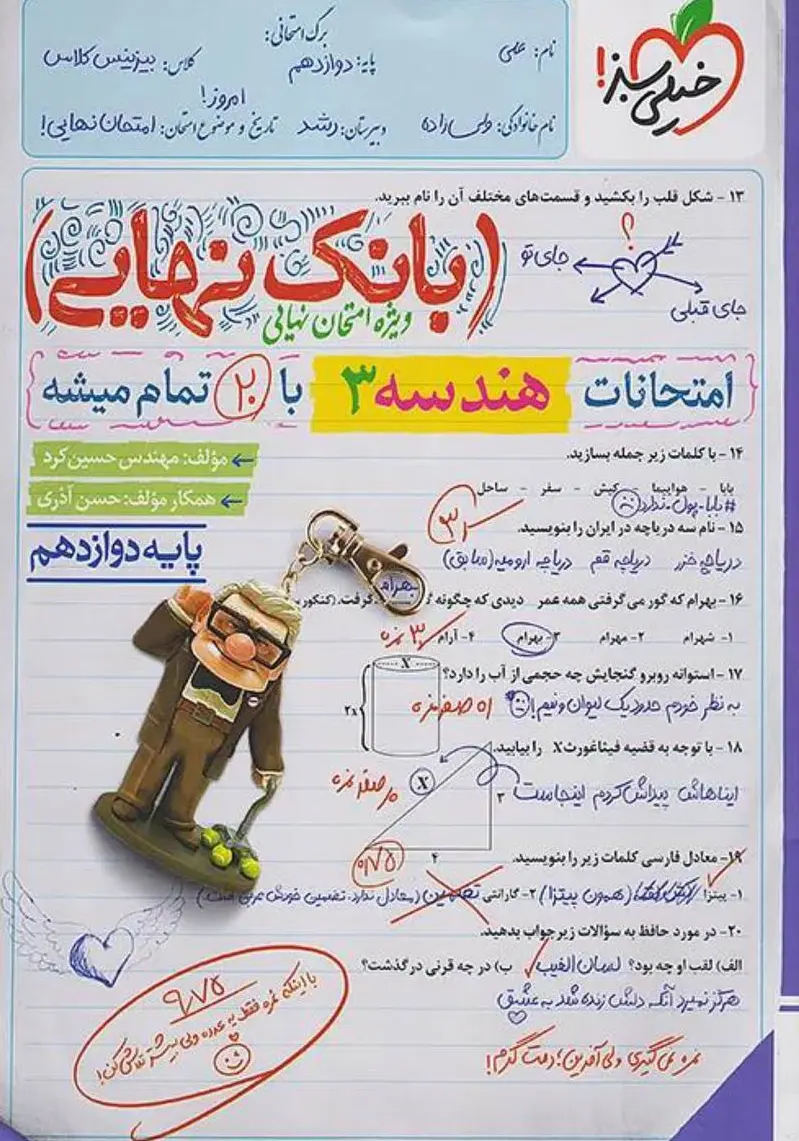 خیلی سبز!
برگ امتحانی:
نام: علی
پایه: دوازدهم
کلاس: بیزینس کلاس
نام خانوادگی: ولی‌زاده
دبیرستان: رشد
تاریخ و موضوع امتحان: امروز! امتحان نهایی!
۱۳ - شکل قلب را بکشید و قسمت‌های مختلف آن را نام ببرید.
؟
جای تو
جای قبلی
(بانک نهایی)
ویژه امتحان نهایی
امتحانات هندسه ۳ با ۲۰ تمام میشه
مؤلف: مهندس حسین کرد
همکار مؤلف: حسن آذری
پایه دوازدهم
۱۴ - با کلمات زیر جمله بسازید.
بابا - هواپیما - کیش - سفر - ساحل
#بابا-پول-ندارد
۱۵ - نام سه دریاچه در ایران را بنویسید.
دریاچه خزر دریاچه قم دریاچه ارومیه (سابق)
بهرام
۱۶ - بهرام که گور می گرفتی همه عمر دیدی که چگونه گرفت.
۱- شهرام ۲- مهرام ۳- بهرام ۴- آرام
۳ نمره
۱۷ - استوانه روبرو گنجایش چه حجمی از آب را دارد؟
X
۲x
به نظر خودم حدود یک لیوان و نیم!
صفر نمره
۱۸ - با توجه به قضیه فیثاغورث X را بیابید.
X
۳
۴
ایناهاش پیداش کردم اینجاست
صفر نمره
۰/۷۵
۱۹- معادل فارسی کلمات زیر را بنویسید.
۱- پیتزا (همون پیتزا) ۲- گارانتی تضمین (معادل ندارد، تضمین خودش عربی است)
۲۰- در مورد حافظ به سؤالات زیر جواب بدهید.
الف) لقب او چه بود؟ لسان الغیب ب) در چه قرنی درگذشت؟
هرگز نمیرد آنکه دلش زنده شد به عشق
۹/۷۵
با اینکه نمره فقط یه عدده ولی بیشتر تلاش کن!
نمره نمی‌گیری ولی آفرین؛ دمت گرم!